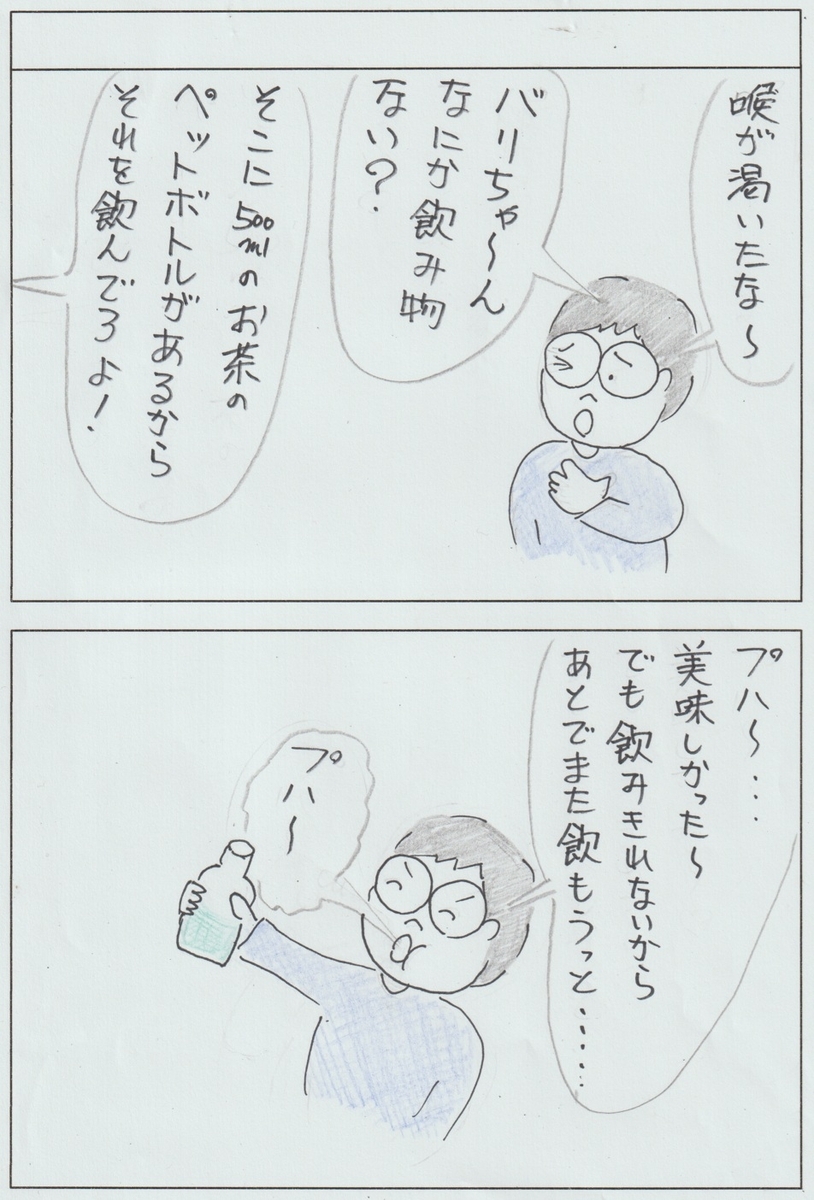 喉が渇いたな〜
バリちゃ〜ん
なにか飲み物
ない?
そこに500mlのお茶の
ペットボトルがあるから
それを飲んでろよ!
プハ〜・・・
美味しかった〜
でも飲みきれないから
あとでまた飲もうっと・・・・・
プハ〜